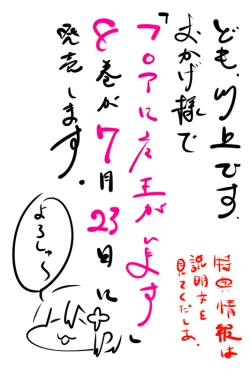 ども、川上です。
おかげ様で
「フロアに魔王がいます」
8巻が7月23日に
発売します。
よろしゅ〜
特典情報は
説明文を
見てくだしあ